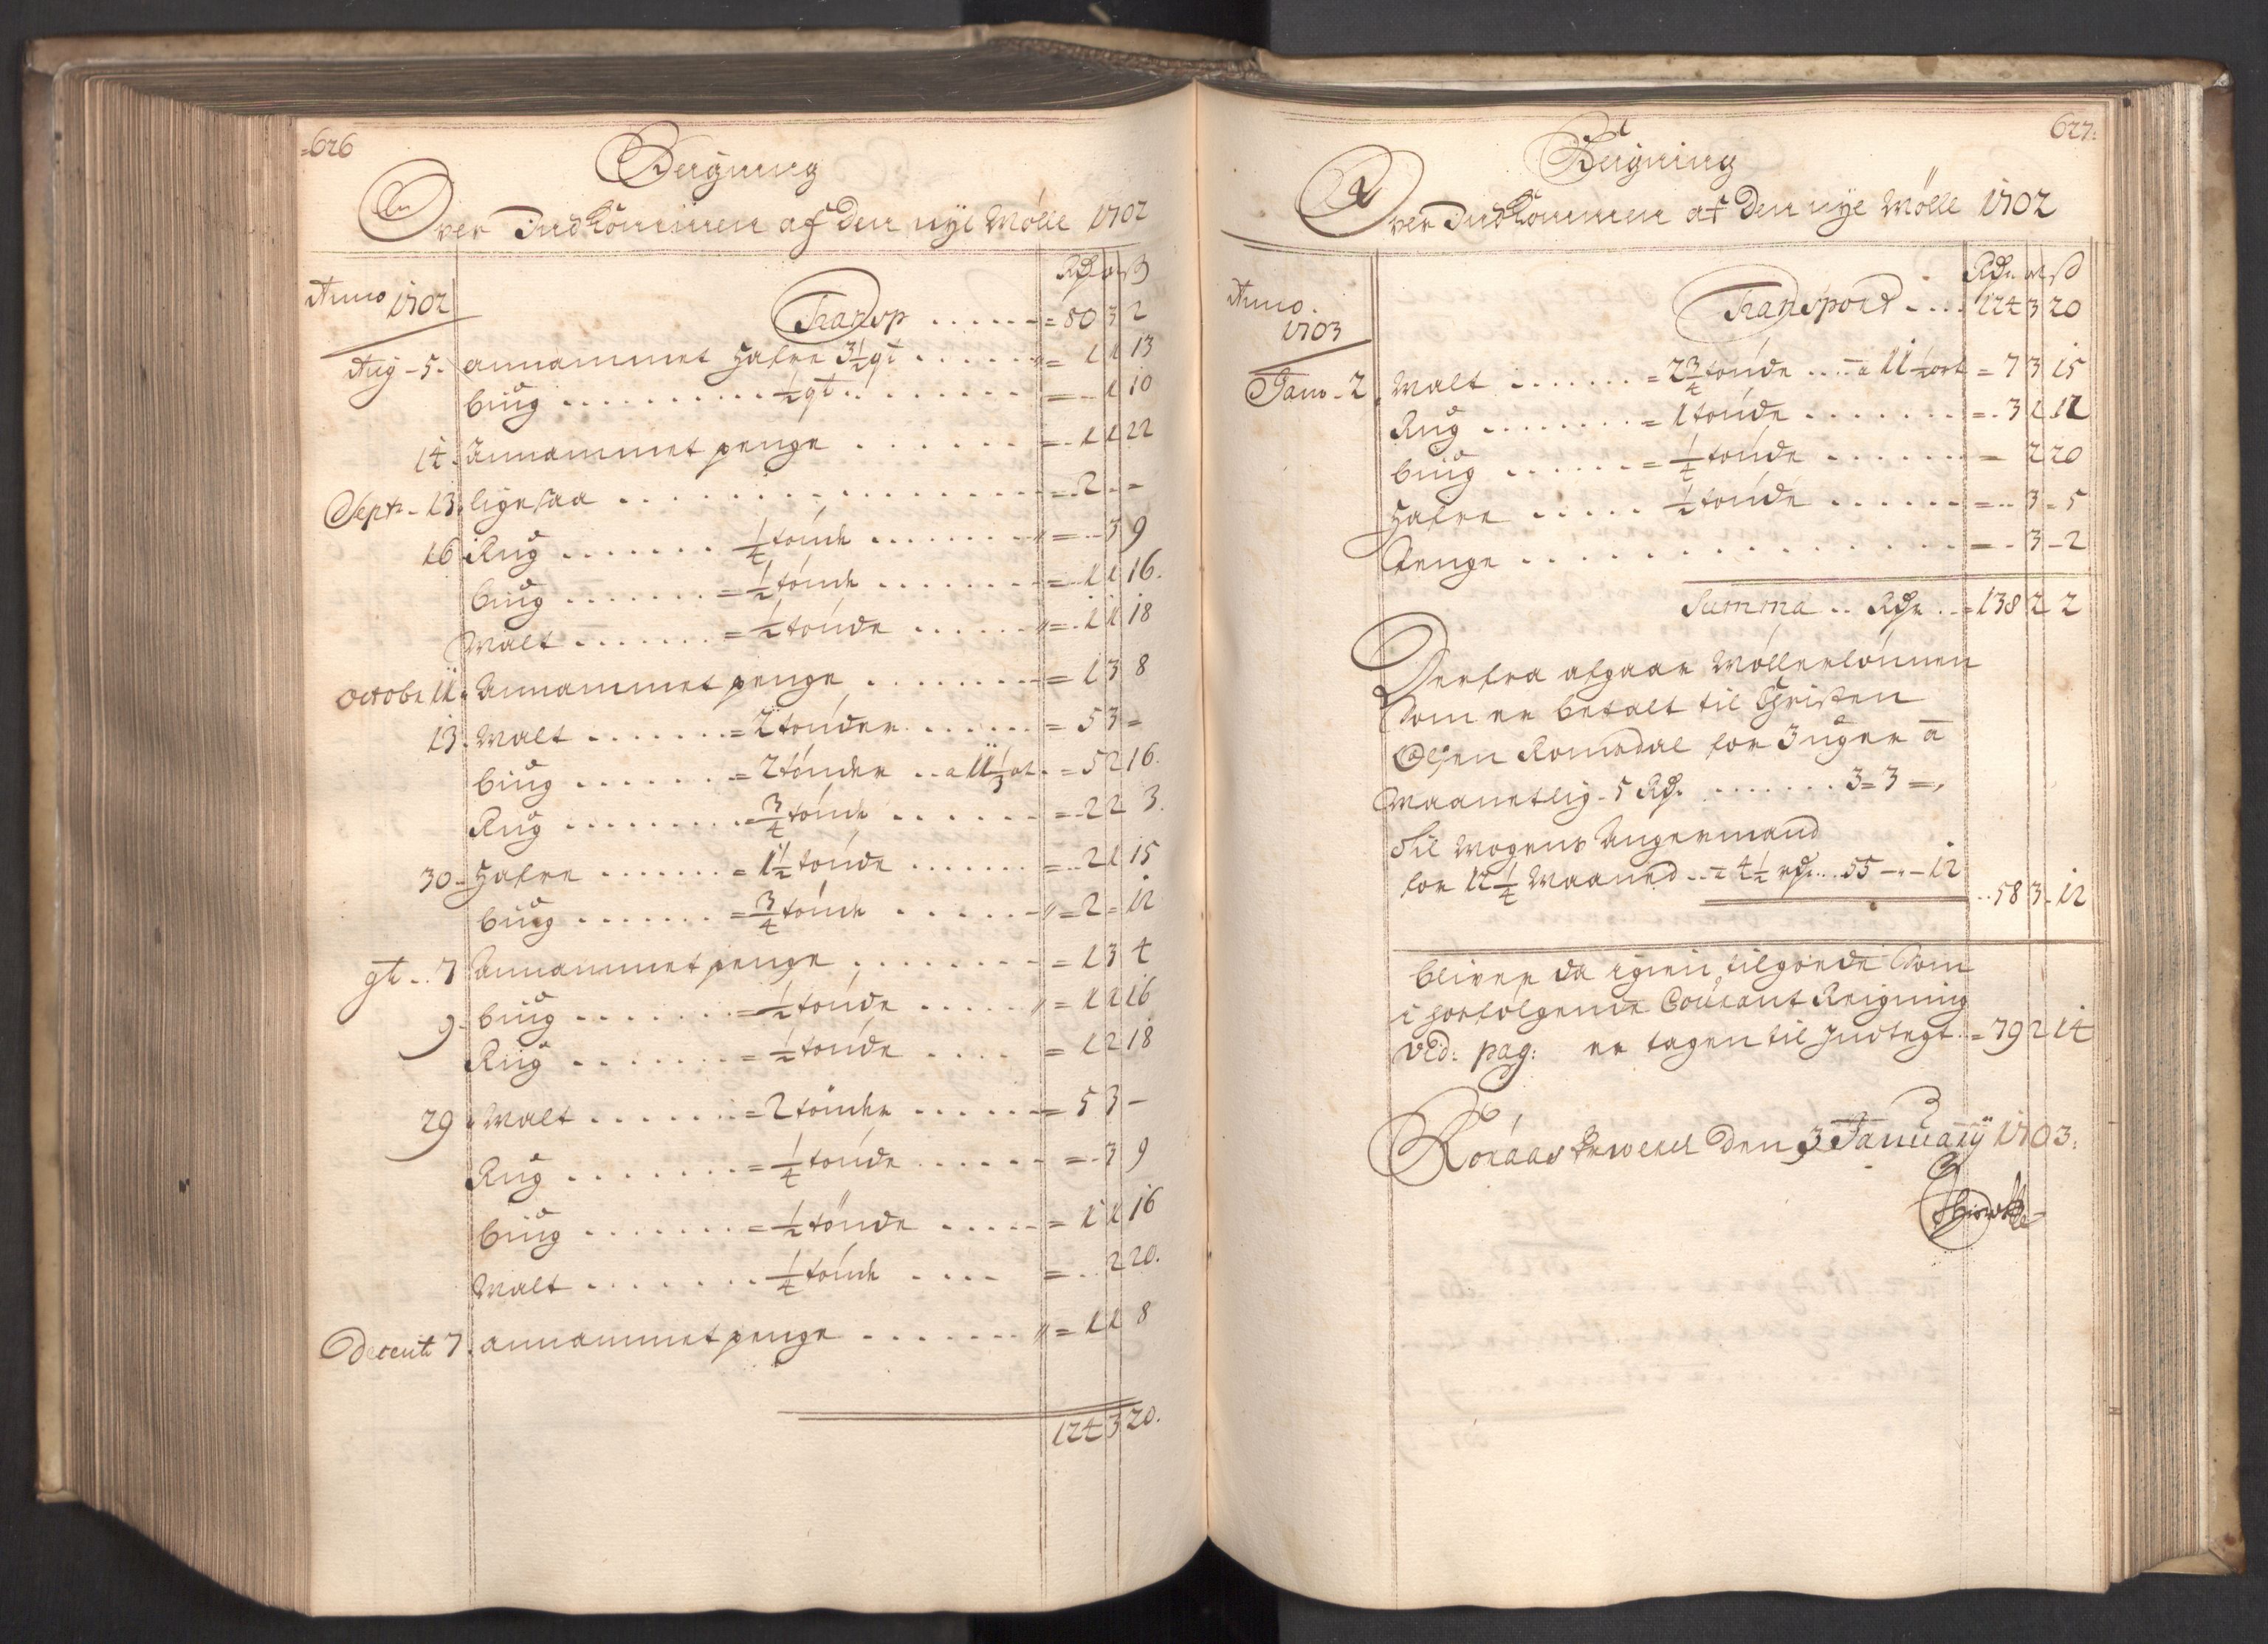 626
Reigning
Over Indkommen af den nÿe Mölle 1702
Anno 1702
Rdr ort ß
Transp ..... = 80 3 2
Aug - 5. annammet Hafre 3½ qt ...... = 1 1 13
biug .......... ½ qt ........ = - 1 10
14. Annammet penge ....... = 1 1 22
Septr - 13. ligesaa ............... = 2 - =
16 Rug ....... ¼ tönde ........ = - 3 9
biug ....... = ½ tönde ........ = 1 1 16.
Malt ....... = ½ tönde ...... = 1 1 18
Octobr 11. Annammet penge ........ = 1 3 8
13. Malt ....... = 2 tönder ....... = 5 3 =
biug ...... = 2 tönder .. a 11⅓ ort. = 5 2 16.
Rug ........ = ¾ tönde ...... = 2 2 3.
30 - Hafre ....... = 1½ tönde ....... = 2 1 15
biug ....... = ¾ tönde ...... = 2 = 12
9br .. 7 Annammet penge ........ = 1 3 4
9 - biug ....... = ½ tönde ...... = 1 1 16
Rug ....... = ½ tönde .... = 1 2 18
29 Malt ...... = 2 tönder ...... = 5 3 -
Rug ...... = ¼ tönde ...... = - 3 9
biug ....... = ½ tönde ..... = 1 1 16
Malt ....... ¼ tönde .... = .. 2 20.
Decemb 7. annammet penge ....... = 1 1 8
124 3 20.
627.
Reigning
Over Indkommen af den nÿe Mölle 1702
Anno.
1703
Rdr. ort ß
Transport .... 124 3 20
Janv - 2. Malt ....... = 2¾ tönde .... a 11½ ort = 7 3 15
Rug ........ = 1 tönde ........ = . 3 1 12
biug ...... = ¼ tönde ....... = 2 20
Hafre ..... ½ tönde ...... = .. 3 = 5
Penge ............... = - 3 - 2
Summa .. Rdr .. = 138 2 2
Derfra afgaar Möllerlönnen
Som er betalt til Christen
Olsen Romedal for 3 uger a
Maanetlig - 5 Rdr. ....... 3 = 3 =,
Til Mogens Angermand
for 12¼ Maaned .. a 4½ rdr ... 55 - " - 12
.. 58 3 - 12
bliver da igien tilgode Som
i forfölgende Courant Reigning
vid: pag: er tagen til Indtegt. = 79 2 14
Röraas den 3 January 1703.